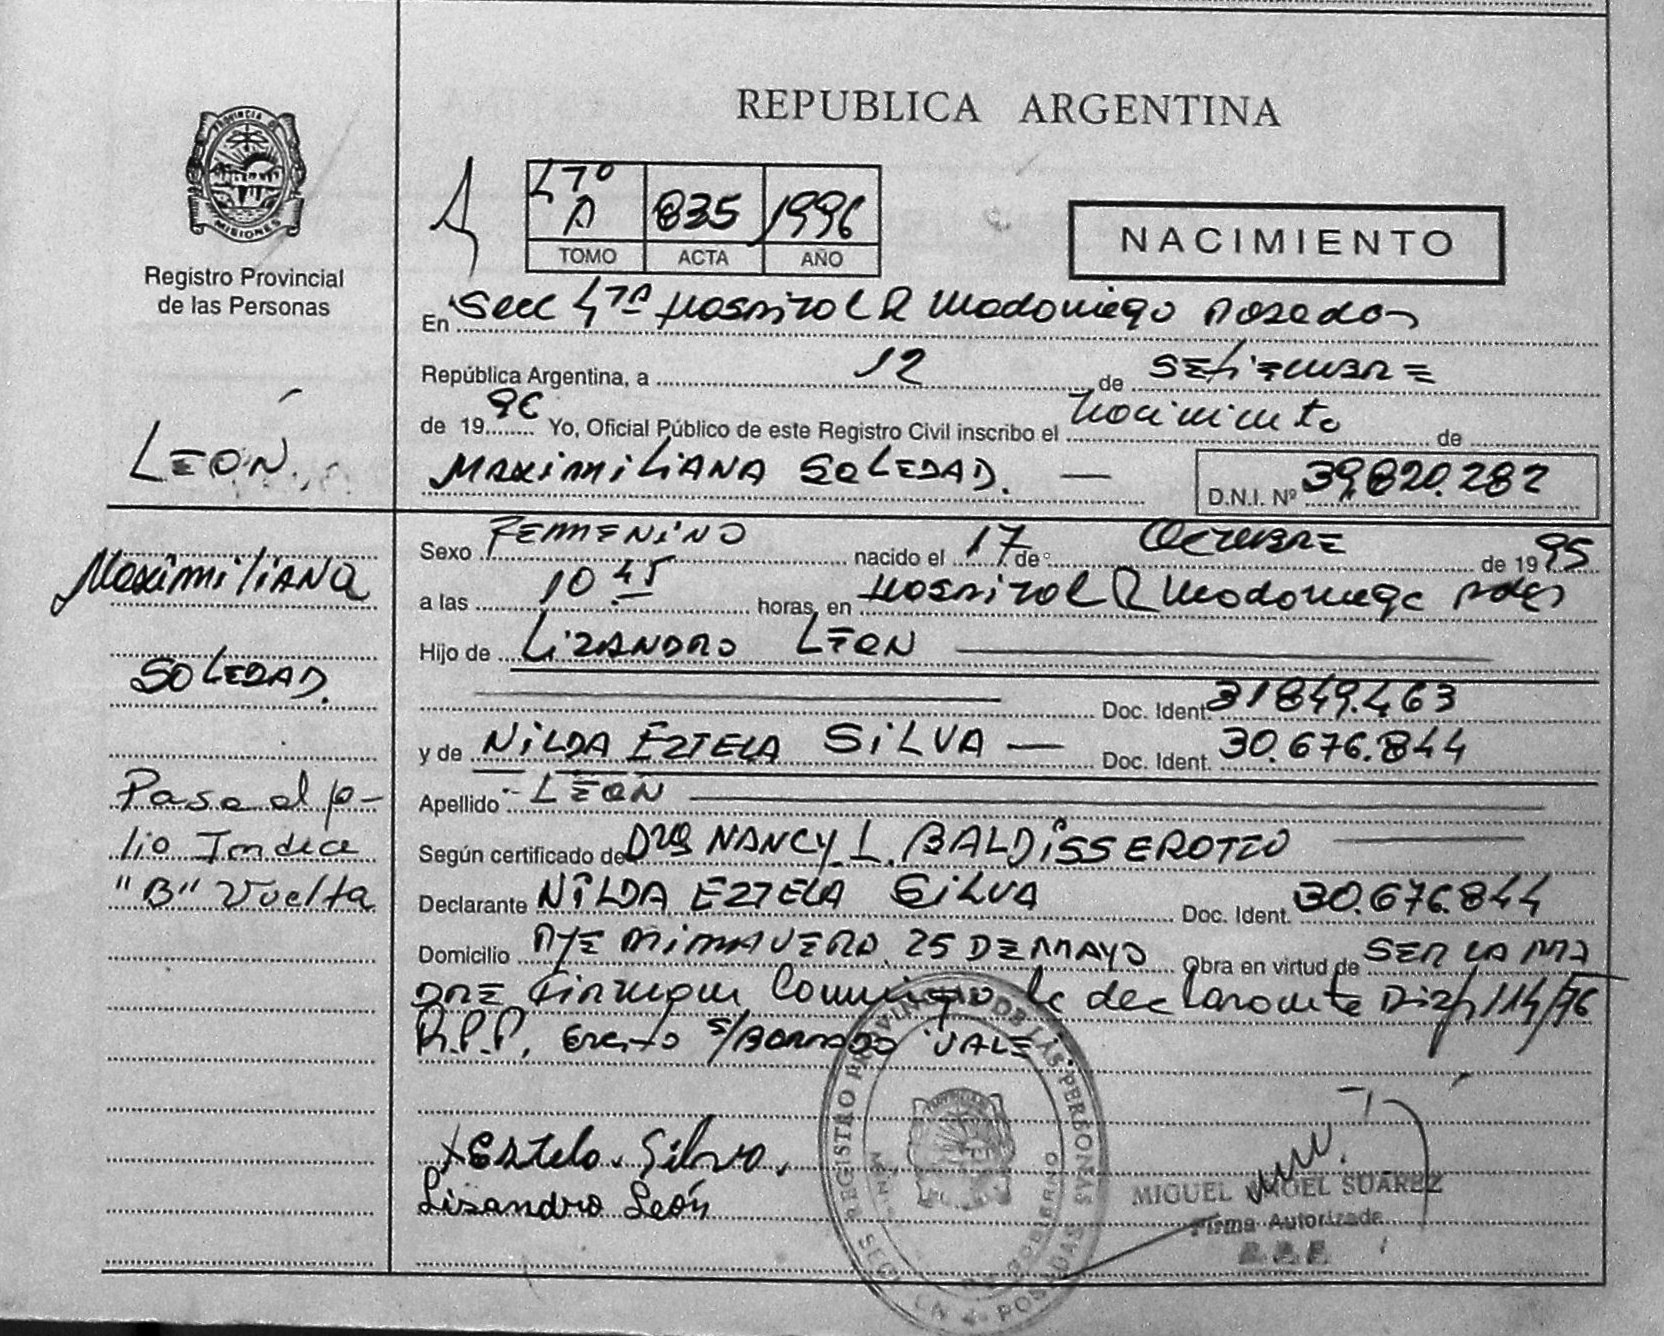 REPUBLICA ARGENTINA
PROVINCIA DE
MISIONES
Registro Provincial
de las Personas
47º
A
835
1996
TOMO ACTA AÑO
NACIMIENTO
En Secc 4ta Hospital R Madariaga Posadas
República Argentina, a 12 de SEtiEMBRE
de 1996 Yo, Oficial Público de este Registro Civil inscribo el Nacimiento de
MAXIMILIANA SOLEDAD. D.N.I. Nº 39.820.282
LEON.
Sexo FEMENINO nacido el 17 de OCTUBRE de 1995
a las 10 45 horas, en Hospital R Madariaga Pdas
Hijo de LIZANDRO LEON
Doc. Ident. 31849.463
y de NILDA EZTELA SILVA Doc. Ident. 30.676.844
Apellido LEON
Según certificado de Dra NANCY L. BALDISSEROTTO
Declarante NILDA EZTELA SILVA Doc. Ident. 30.676.844
Domicilio 25 DE MAYO Obra en virtud de SER LA MA
DRE Firman Conmigo la declarante Disp 114/76
R.P.P. S/BORRADO VALE
MaximiliANA
SOLEDAD.
Pasa al fo-
lio Indice
"B" Vuelta
Estela Silva.
Lisandro León
REGISTRO PROVINCIAL DE LAS PERSONAS
GOBIERNO
POSADAS
MIGUEL ANGEL SUAREZ
Firma Autorizada